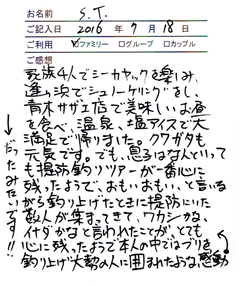 お名前 S.T.
ご記入日 2016 年 7 月 18 日
ご利用 ☑ファミリー □グループ □カップル
ご感想
家族4人でシーカヤックを楽しみ、
逢ヶ浜でシュノーケリングをし、
青木サザエ店で美味しいお昼
を食べ、温泉、塩アイスで大
満足で帰りました。クワガタも
元気です。でも、息子はなんといって
も堤防釣りツアーが一番心に
残ったようで、おもいおもい、と言いな
がら釣り上げたときに堤防にいた
数人が集まってきて、ワカシかな、
イナダかなと言われたことが、とても
心に残ったようで本人の中ではブリを
釣り上げ大勢の人に囲まれたような感動
だったみたいです!!